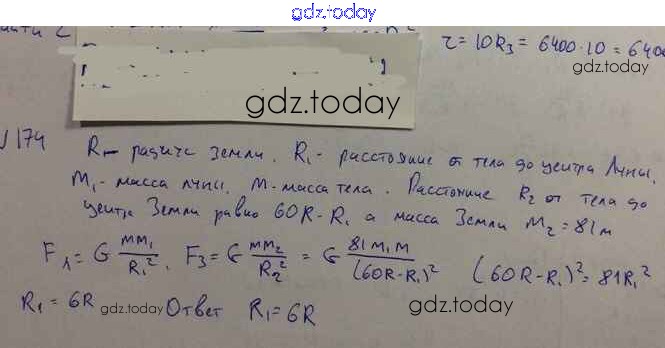 gdz.today
τ = 10R₃ = 6400·10 = 6400
gdz.today
gdz.today
√174
R – радиус Земли. R₁ - расстояние от тела до центра Луны.
M₁ - масса луны. M - масса тела. Расстояние R₂ от тела до
центра Земли равно 60R - R₁ а масса Земли M₂ = 81м
F₁ = G mm₁/R₁², F₃ = G mm₂/R₂² = G 81m₁m/(60R-R₁)² (60R-R₁)² = 81R₁²
R₁ = 6R gdz.today Ответ R₁ = 6R
gdz.today